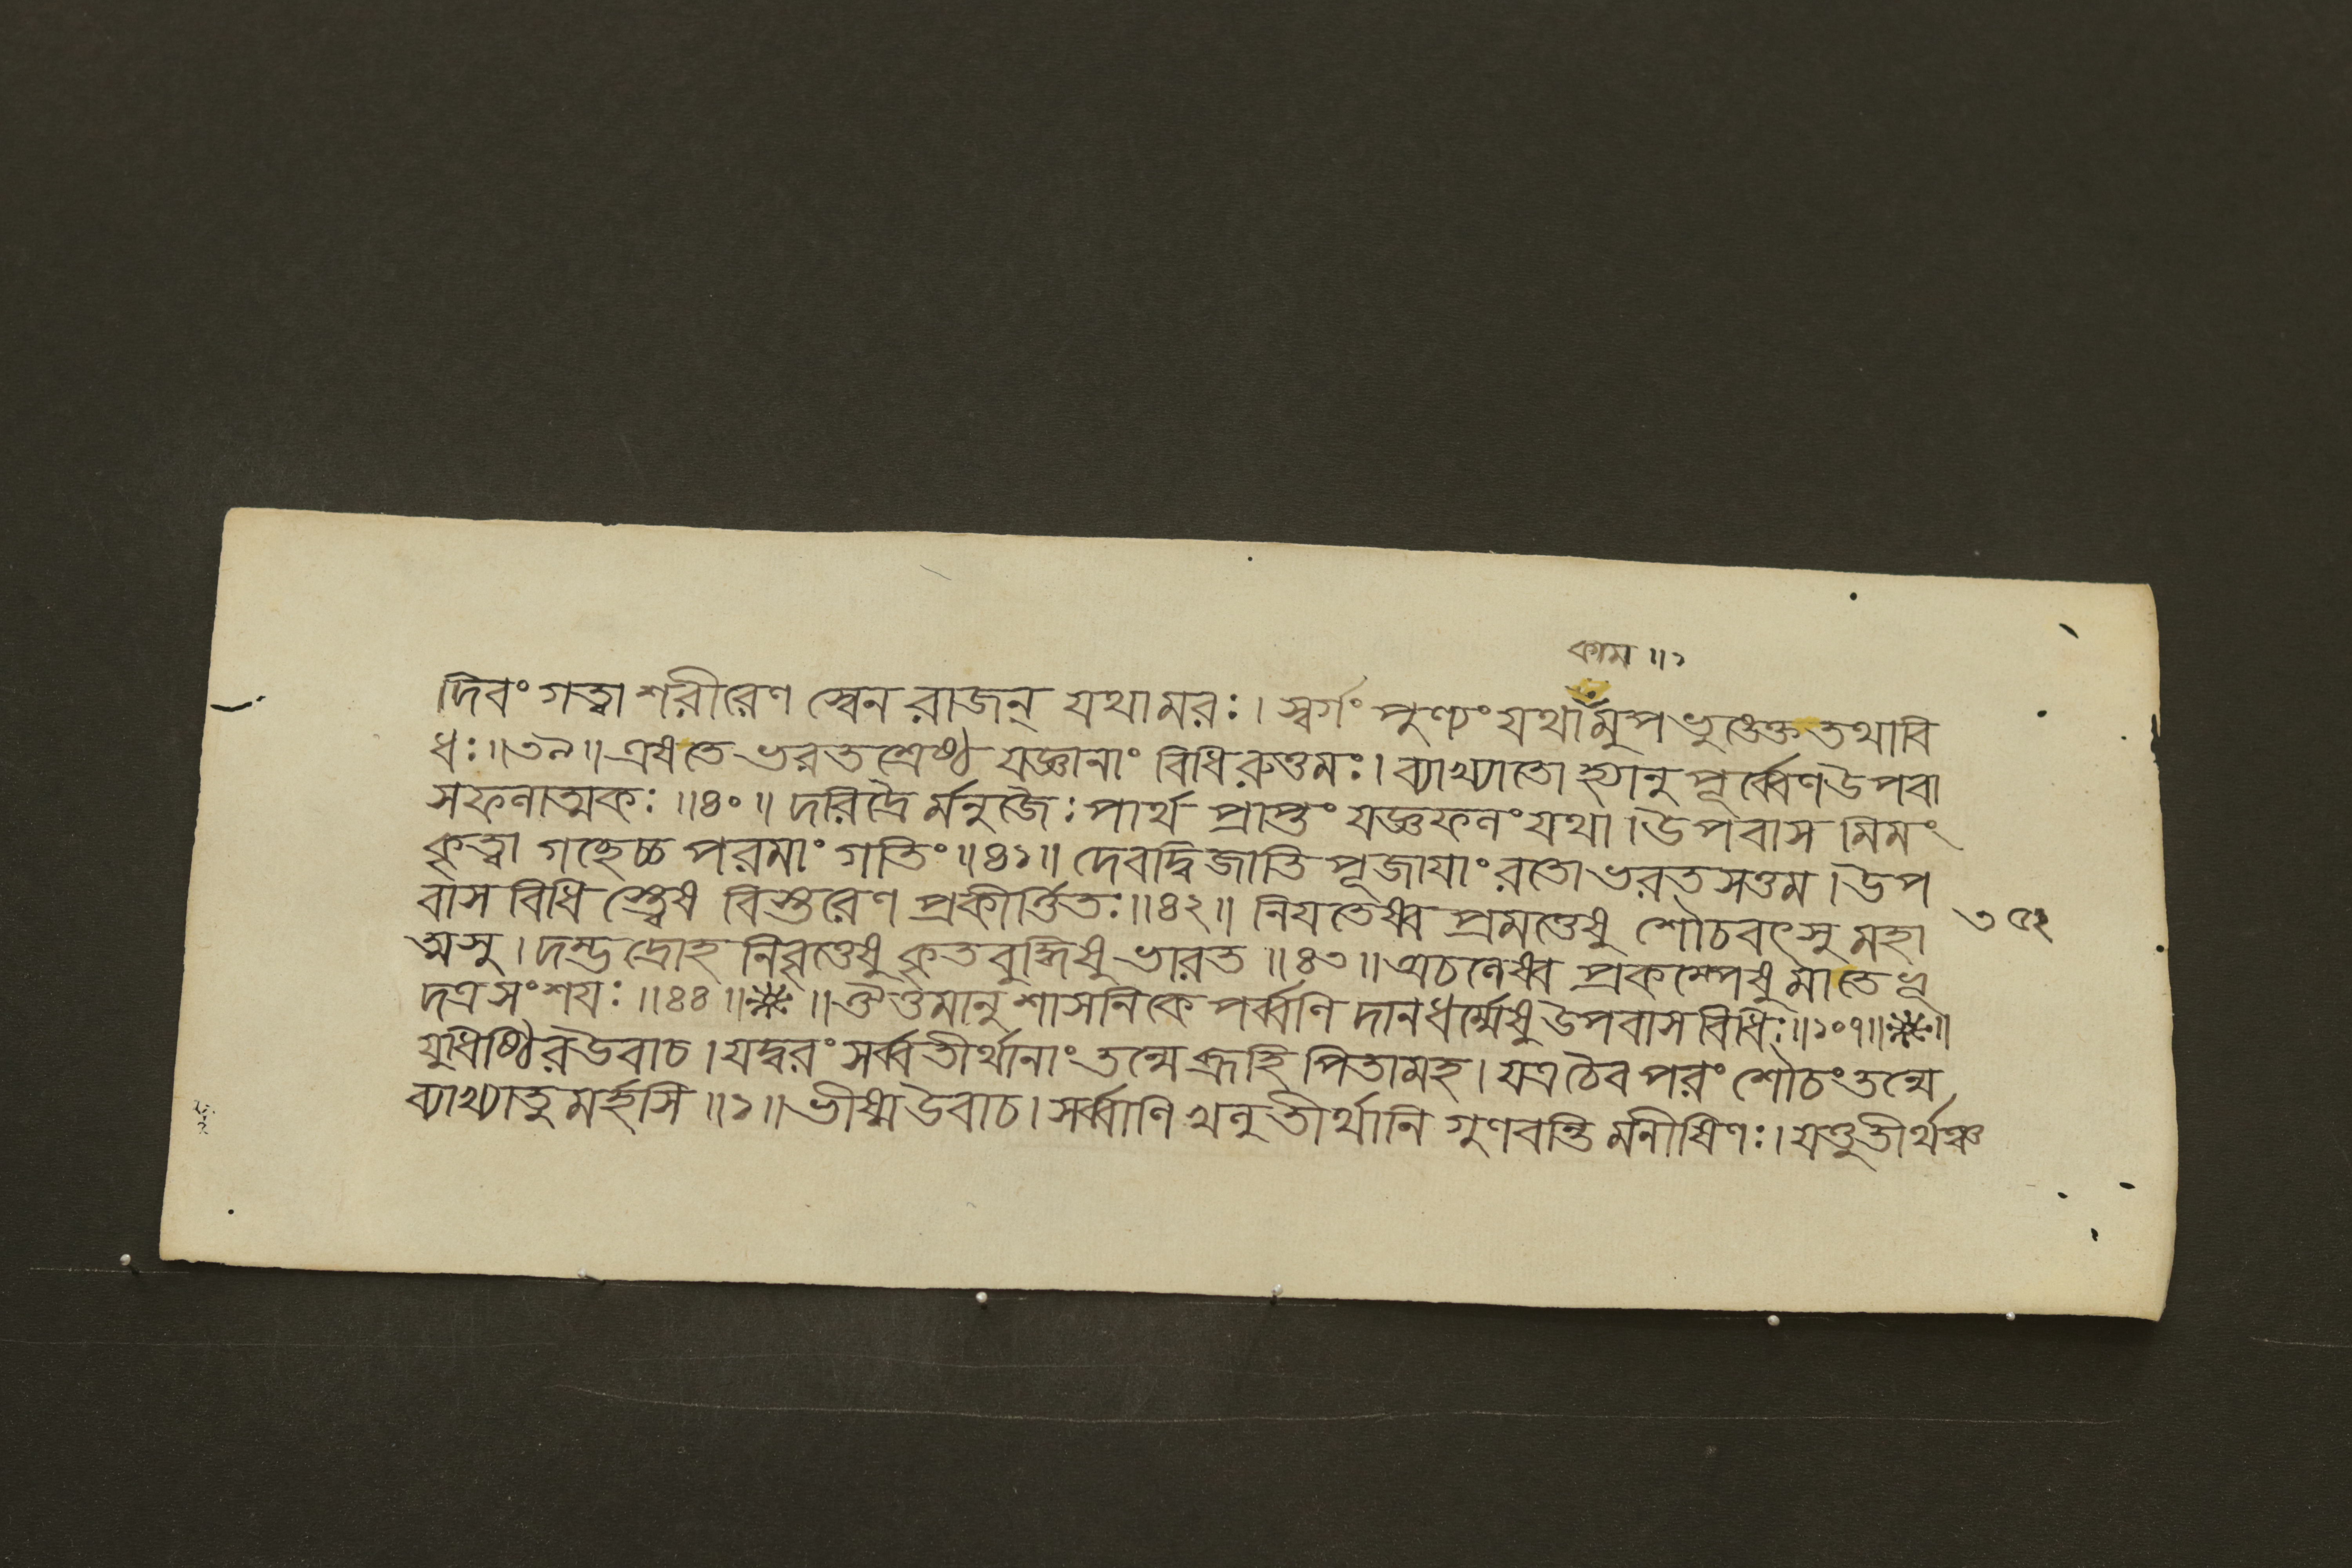 কাম ॥১
দিবং গত্বা শরীরেণ স্বেন রাজন্ যথামরঃ। স্বর্গং পুণ্যং যথামুপভুঙ্ক্তে তথাবি
ধঃ॥৩৯॥ এষতে ভরতশ্রেষ্ঠ যজ্ঞানাং বিধিরুত্তমঃ। ব্যাখ্যাতো হ্যানুপূর্ব্বেণ উপবা
সফলাত্মকঃ ॥৪০॥ দরিদ্রৈ র্মনুজৈঃ পার্থ প্রাপ্তং যজ্ঞফলং যথা। উপবাস মিমং
কৃত্বা গচ্ছেচ্চ পরমাং গতিং॥৪১॥ দেবদ্বিজাতি পূজাযাং রতো ভরতসত্তম। উপ
বাস বিধি স্ত্বেষ বিস্তরেণ প্রকীর্ত্তিতঃ॥৪২॥ নিযতেষ্ব প্রমত্তেষু শৌচবৎসু মহা
৩৫২
ত্মসু। দম্ভদ্রোহ নিবৃত্তেষু কৃতবুদ্ধিষু ভারত ॥৪৩॥ অচলেষ্ব প্রকম্পেষু মাতে ভূ
দত্রসংশযঃ ॥৪৪॥※॥ ঔত্তমানুশাসনিকে পর্ব্বণি দানধর্ম্মেষু উপবাস বিধিঃ॥১০৭॥※॥
যুধিষ্ঠির উবাচ। যদ্বরং সর্ব্বতীর্থানাং তন্মে ব্রূহি পিতামহ। যত্রচৈব পরং শৌচং তন্মে
ব্যাখ্যাতু মর্হসি ॥১॥ ভীষ্ম উবাচ। সর্ব্বাণি খলু তীর্থানি গুণবন্তি র্মনীষিণঃ। যত্তুতীর্থঞ্চ